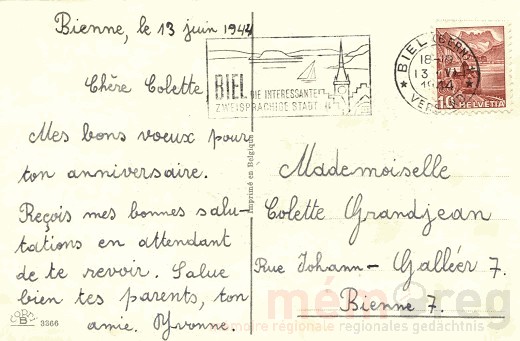 Bienne, le 13 juin 1944
Chère Colette
Mes bons voeux pour
ton anniversaire.
Reçois mes bonnes salu-
tations en attendant
de te revoir. Salue
bien tes parents, ton
amie. Yvonne.
CORD.
B
3366
Imprimé en Belgique
BIEL DIE INTERESSANTE
ZWEISPRACHIGE STADT
BIEL (BERN)
18-19
13 VI
1944
VERS
10
HELVETIA
Mademoiselle
Colette Grandjean
Rue Johann-Galléer 7.
Bienne 7.
mémoreg
mémoire régionale regionales gedächtnis